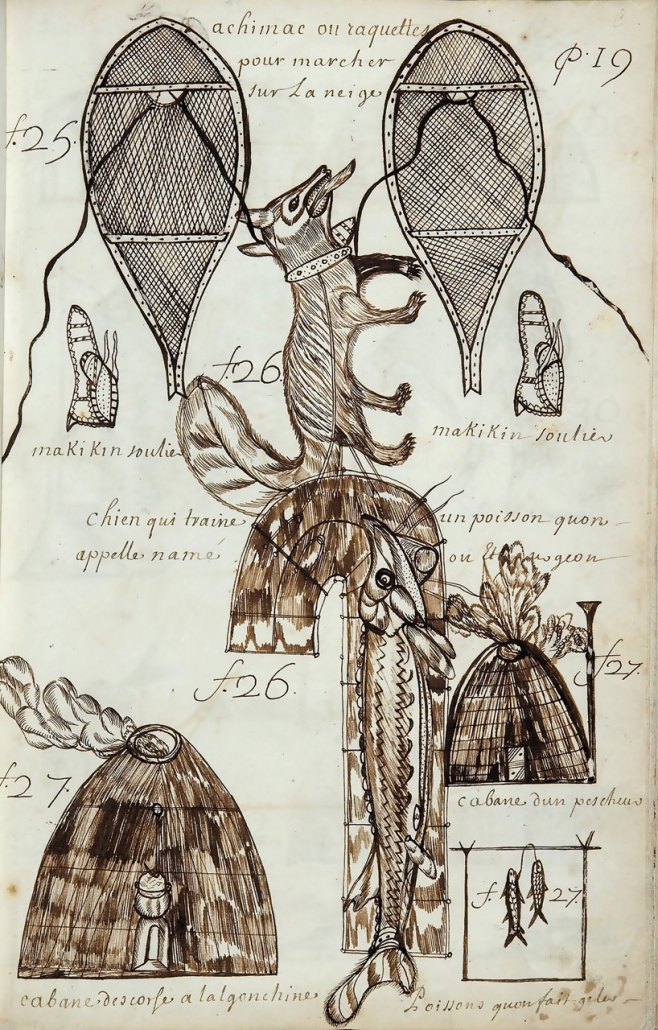 achimac ou raquettes
pour marcher
sur La neige
P.19
f.25
f.26
makikin soulier
makikin soulier
chien qui traine
un poisson quon
appelle namé
ou Eturgeon
f.26.
f.27.
f.27.
cabane dun pescheur
f. 27.
cabane descorse a lalgonchine
Poissons quon fait geler